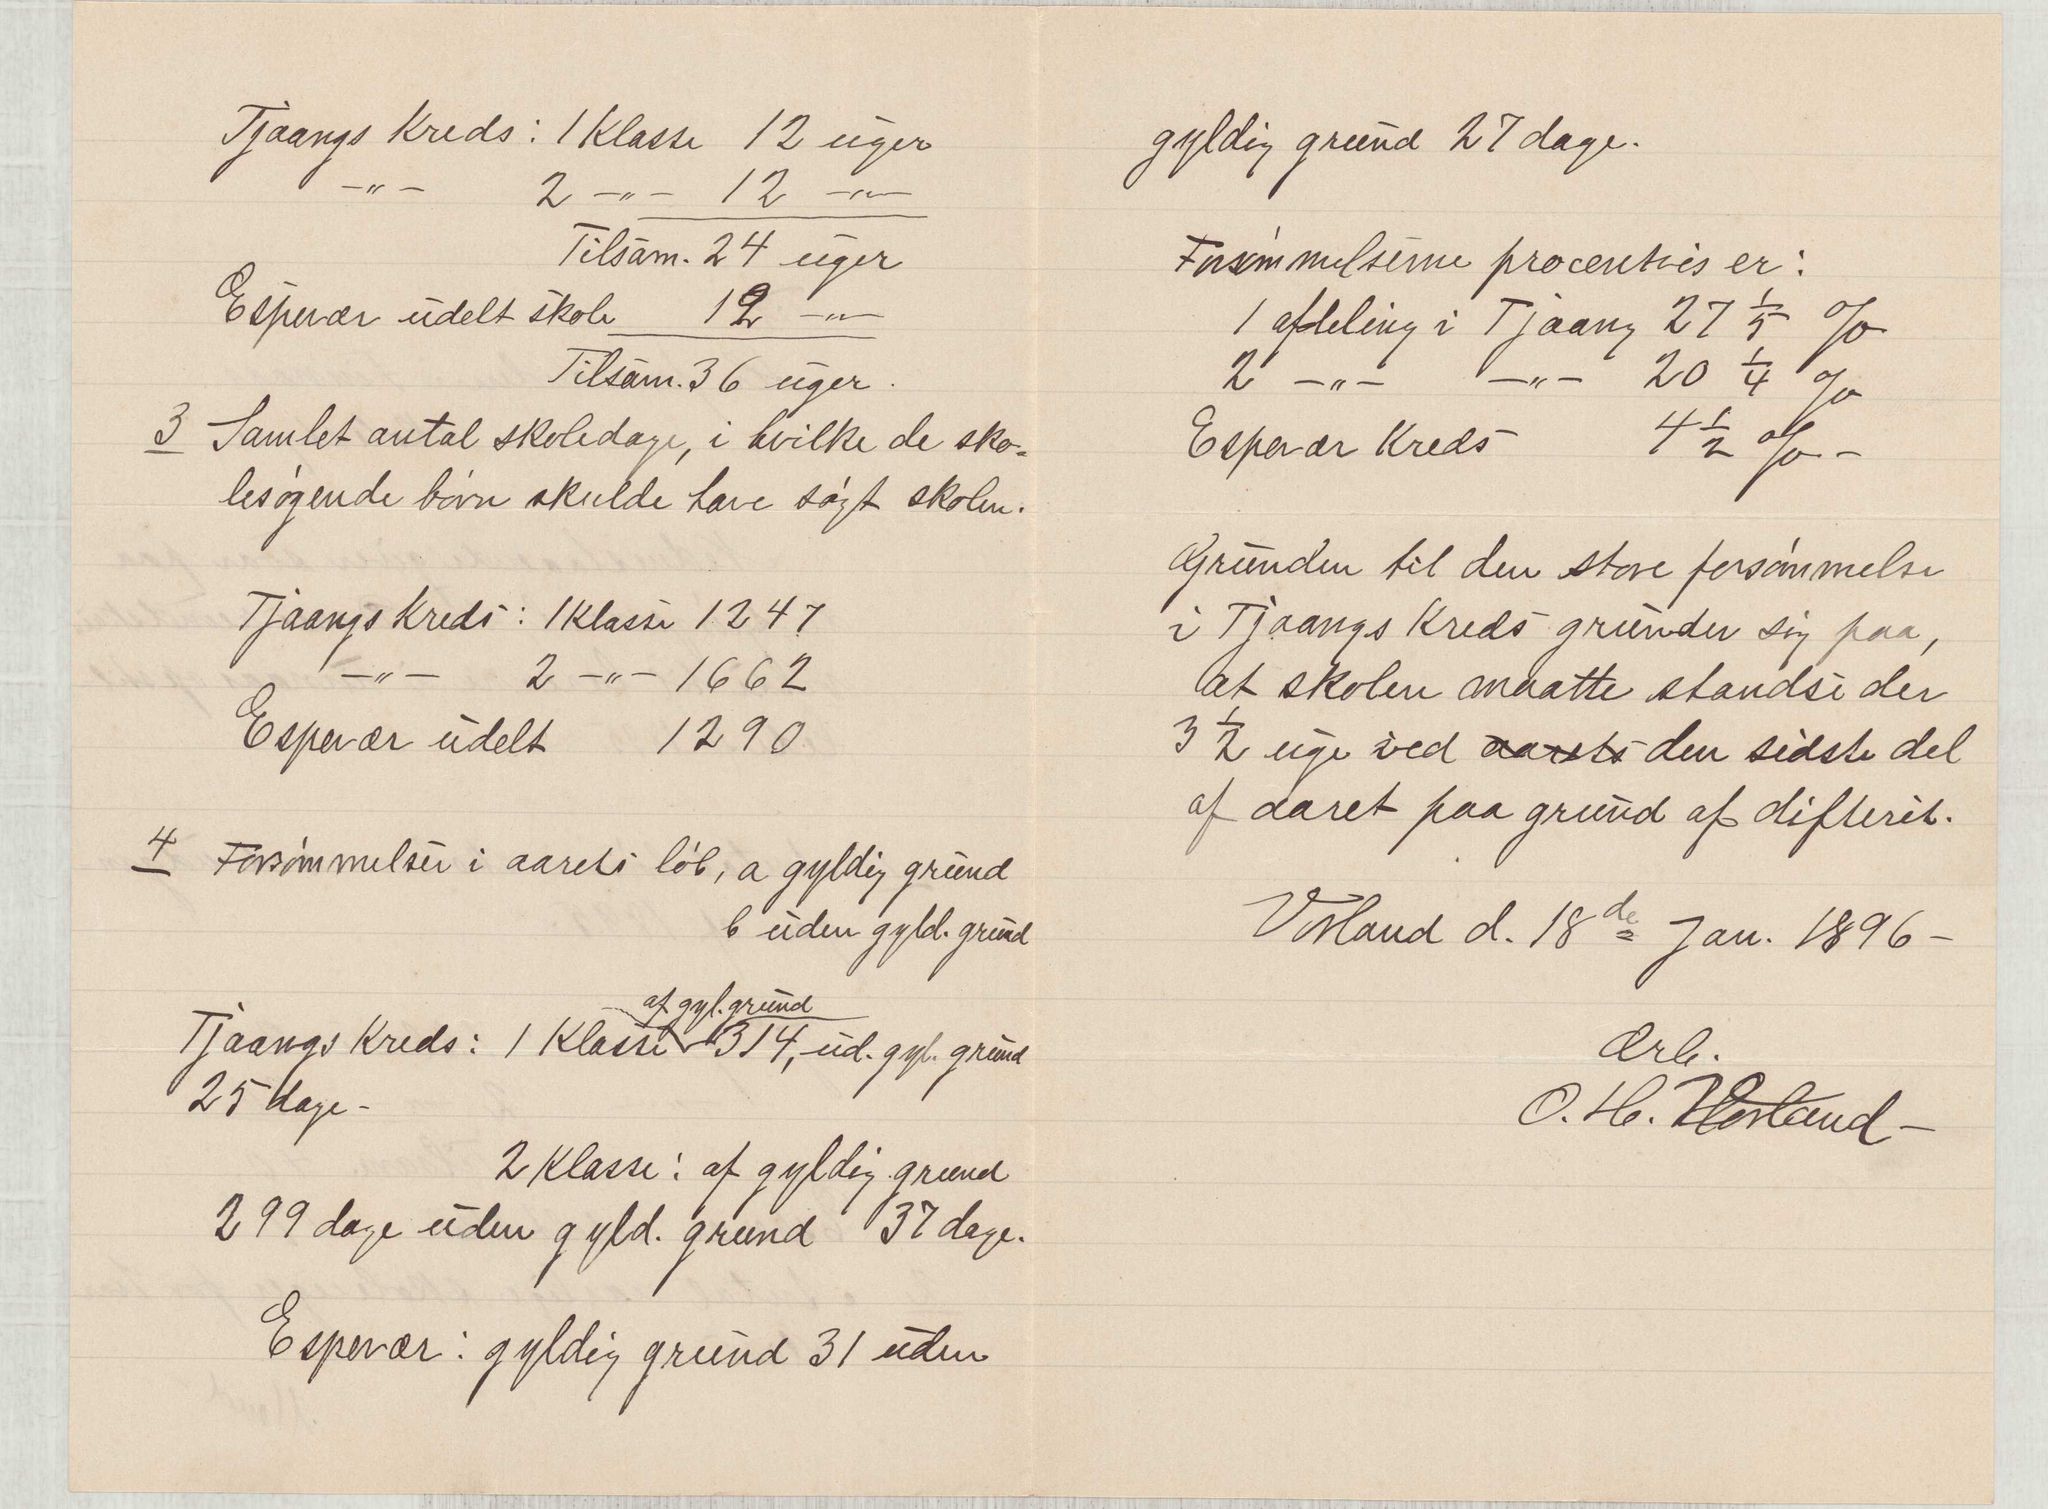 Tjaangs Kreds: 1 Klasse 12 uger
—"— 2 —"— 12 —"—
Tilsam. 24 uger
Espevær udelt skole 12 —"—
Tilsam. 36 uger.
3 Samlet antal skoledage, i hvilke de sko=
lesøgende børn skulde have søgt skolen.
Tjaangs Kreds: 1 Klasse 1247
—"— 2 —"— 1662
Espevær udelt 1290
4 Forsømmelser i aarets løb, a gyldig grund
b uden gyld. grund
af gyl. grund
Tjaangs Kreds: 1 Klasse 314, ud. gyl. grund
25 dage -
2 Klasse: af gyldig grund
299 dage uden gyld. grund 37 dage.
Espevær: gyldig grund 31 uden
gyldig grund 27 dage.
Forsømmelserne procentvis er:
1 afdeling i Tjaang 27 1/5 %
2 —"— —"— 20 1/4 %
Espevær Kreds 4 1/2 % -
Grunden til den store forsømmelse
i Tjaangs Kreds grunder sig paa,
at skolen maatte standse der
3 1/2 uge ved aarets den sidste del
af aaret paa grund af difterit.
Vorland d. 18de Jan. 1896 -
Ærb.
O. H. Vorland -